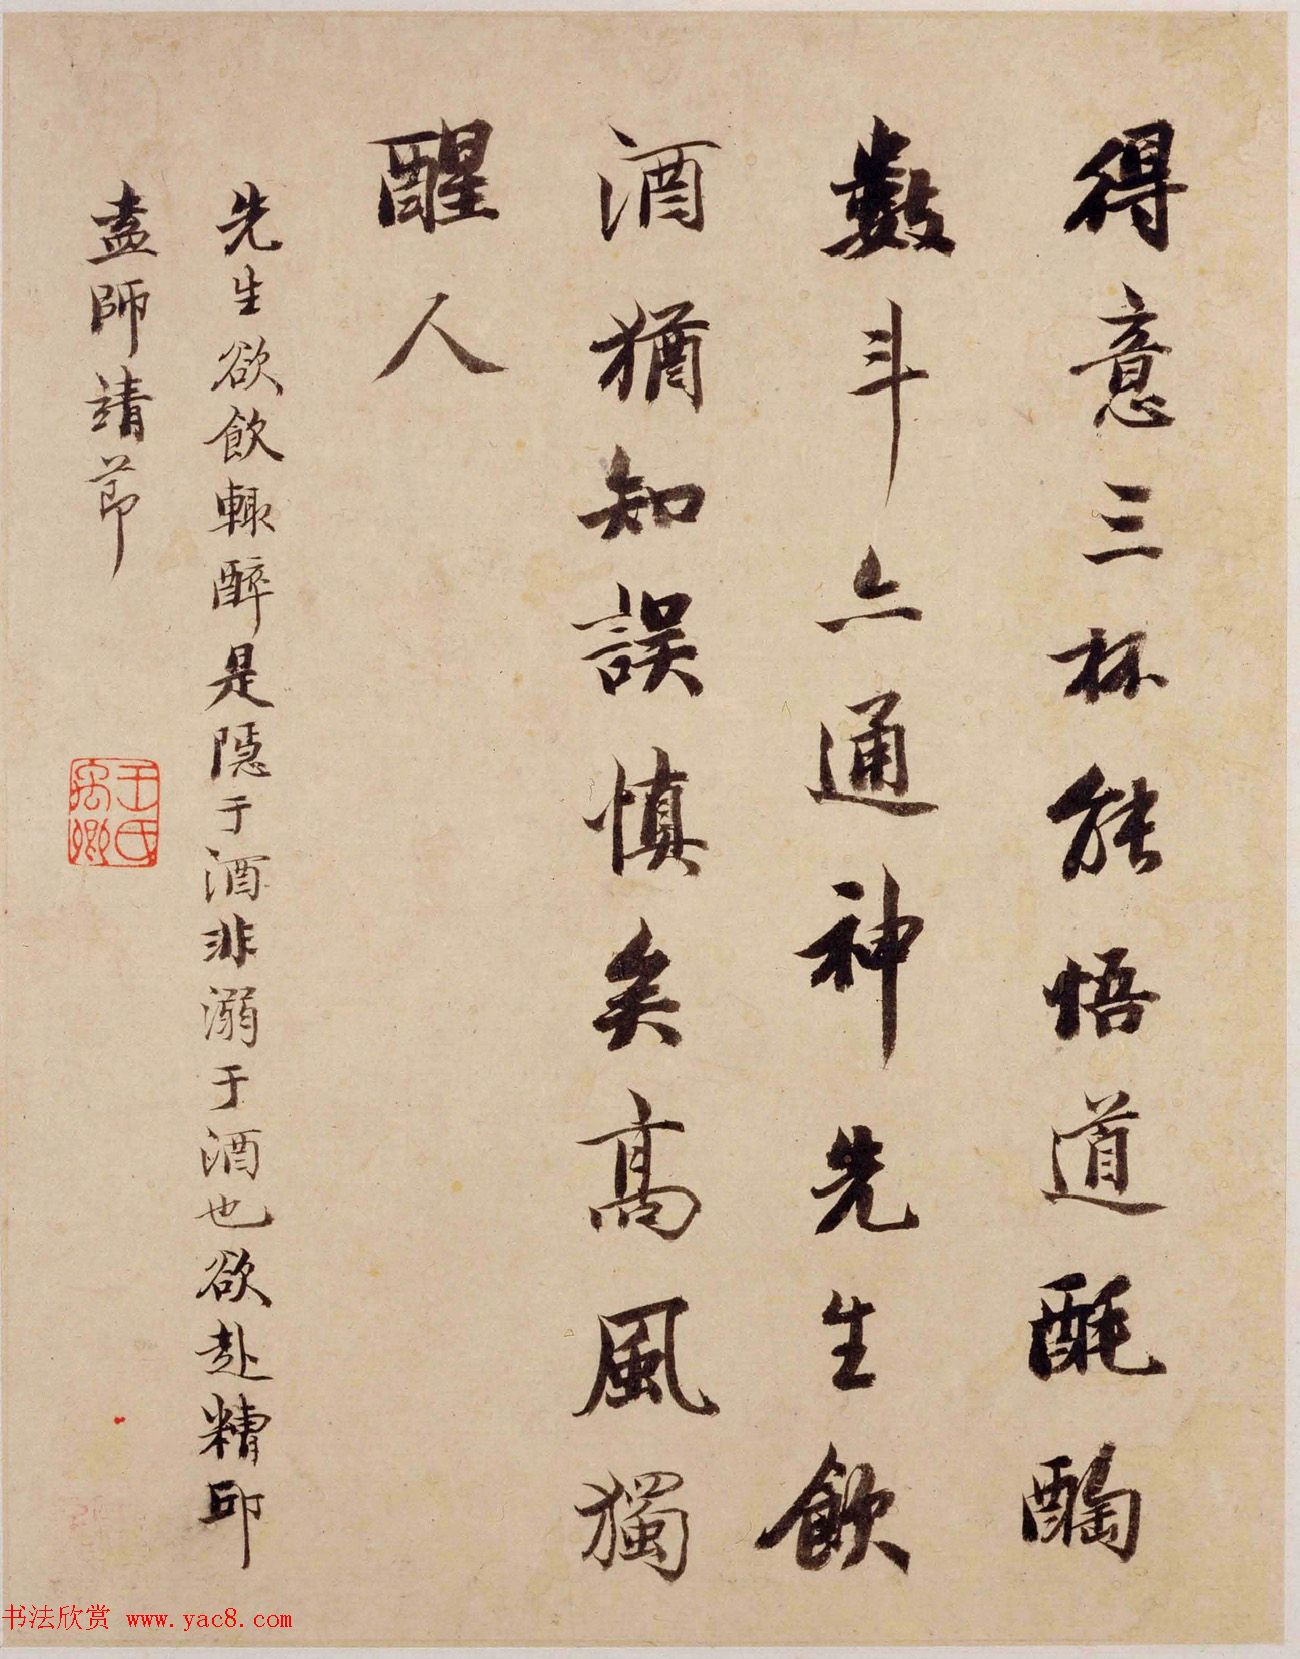 得意三杯能悟道酕醄
數斗亦通神先生飲
酒猶知誤慎矣高風獨
醒人
先生欲飲輒醉是隱于酒非溺于酒也欲赴糟邱
盍師靖節
书法欣赏 www.yac8.com